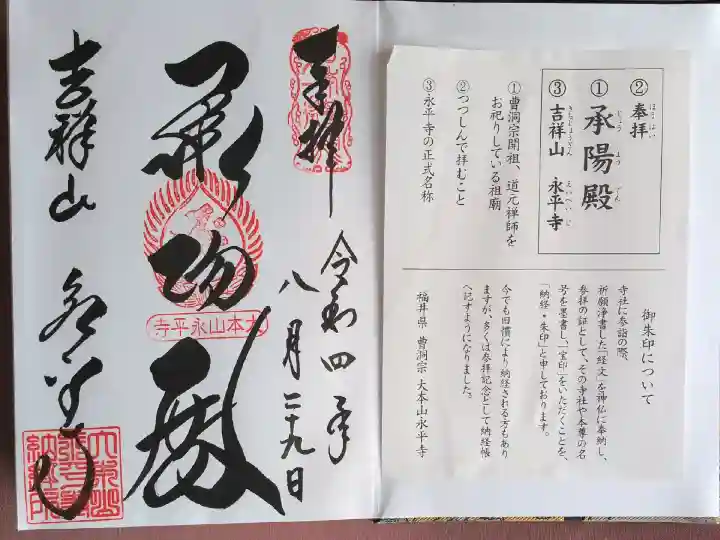 ② 奉拝
ほう はい
① 承陽殿
じょう よう でん
③ 吉祥山 永平寺
きちじょうざん えいへいじ
① 曹洞宗開祖、道元禅師を
お祀りしている祖廟
② つつしんで拝むこと
③ 永平寺の正式名称
御朱印について
寺社に参詣の際、
祈願浄書した「経文」を神仏に奉納し、
参拝の証として、その寺社や本尊の名
号を墨書し、「宝印」をいただくことを、
「納経・朱印」と申しております。
今でも旧慣により納経される方もあり
ますが、多くは参拝記念として納経帳
へ記すようになりました。
福井県 曹洞宗 大本山永平寺
奉拝
令和四年
八月二十九日
承陽殿
大本山永平寺
吉祥山 永平寺